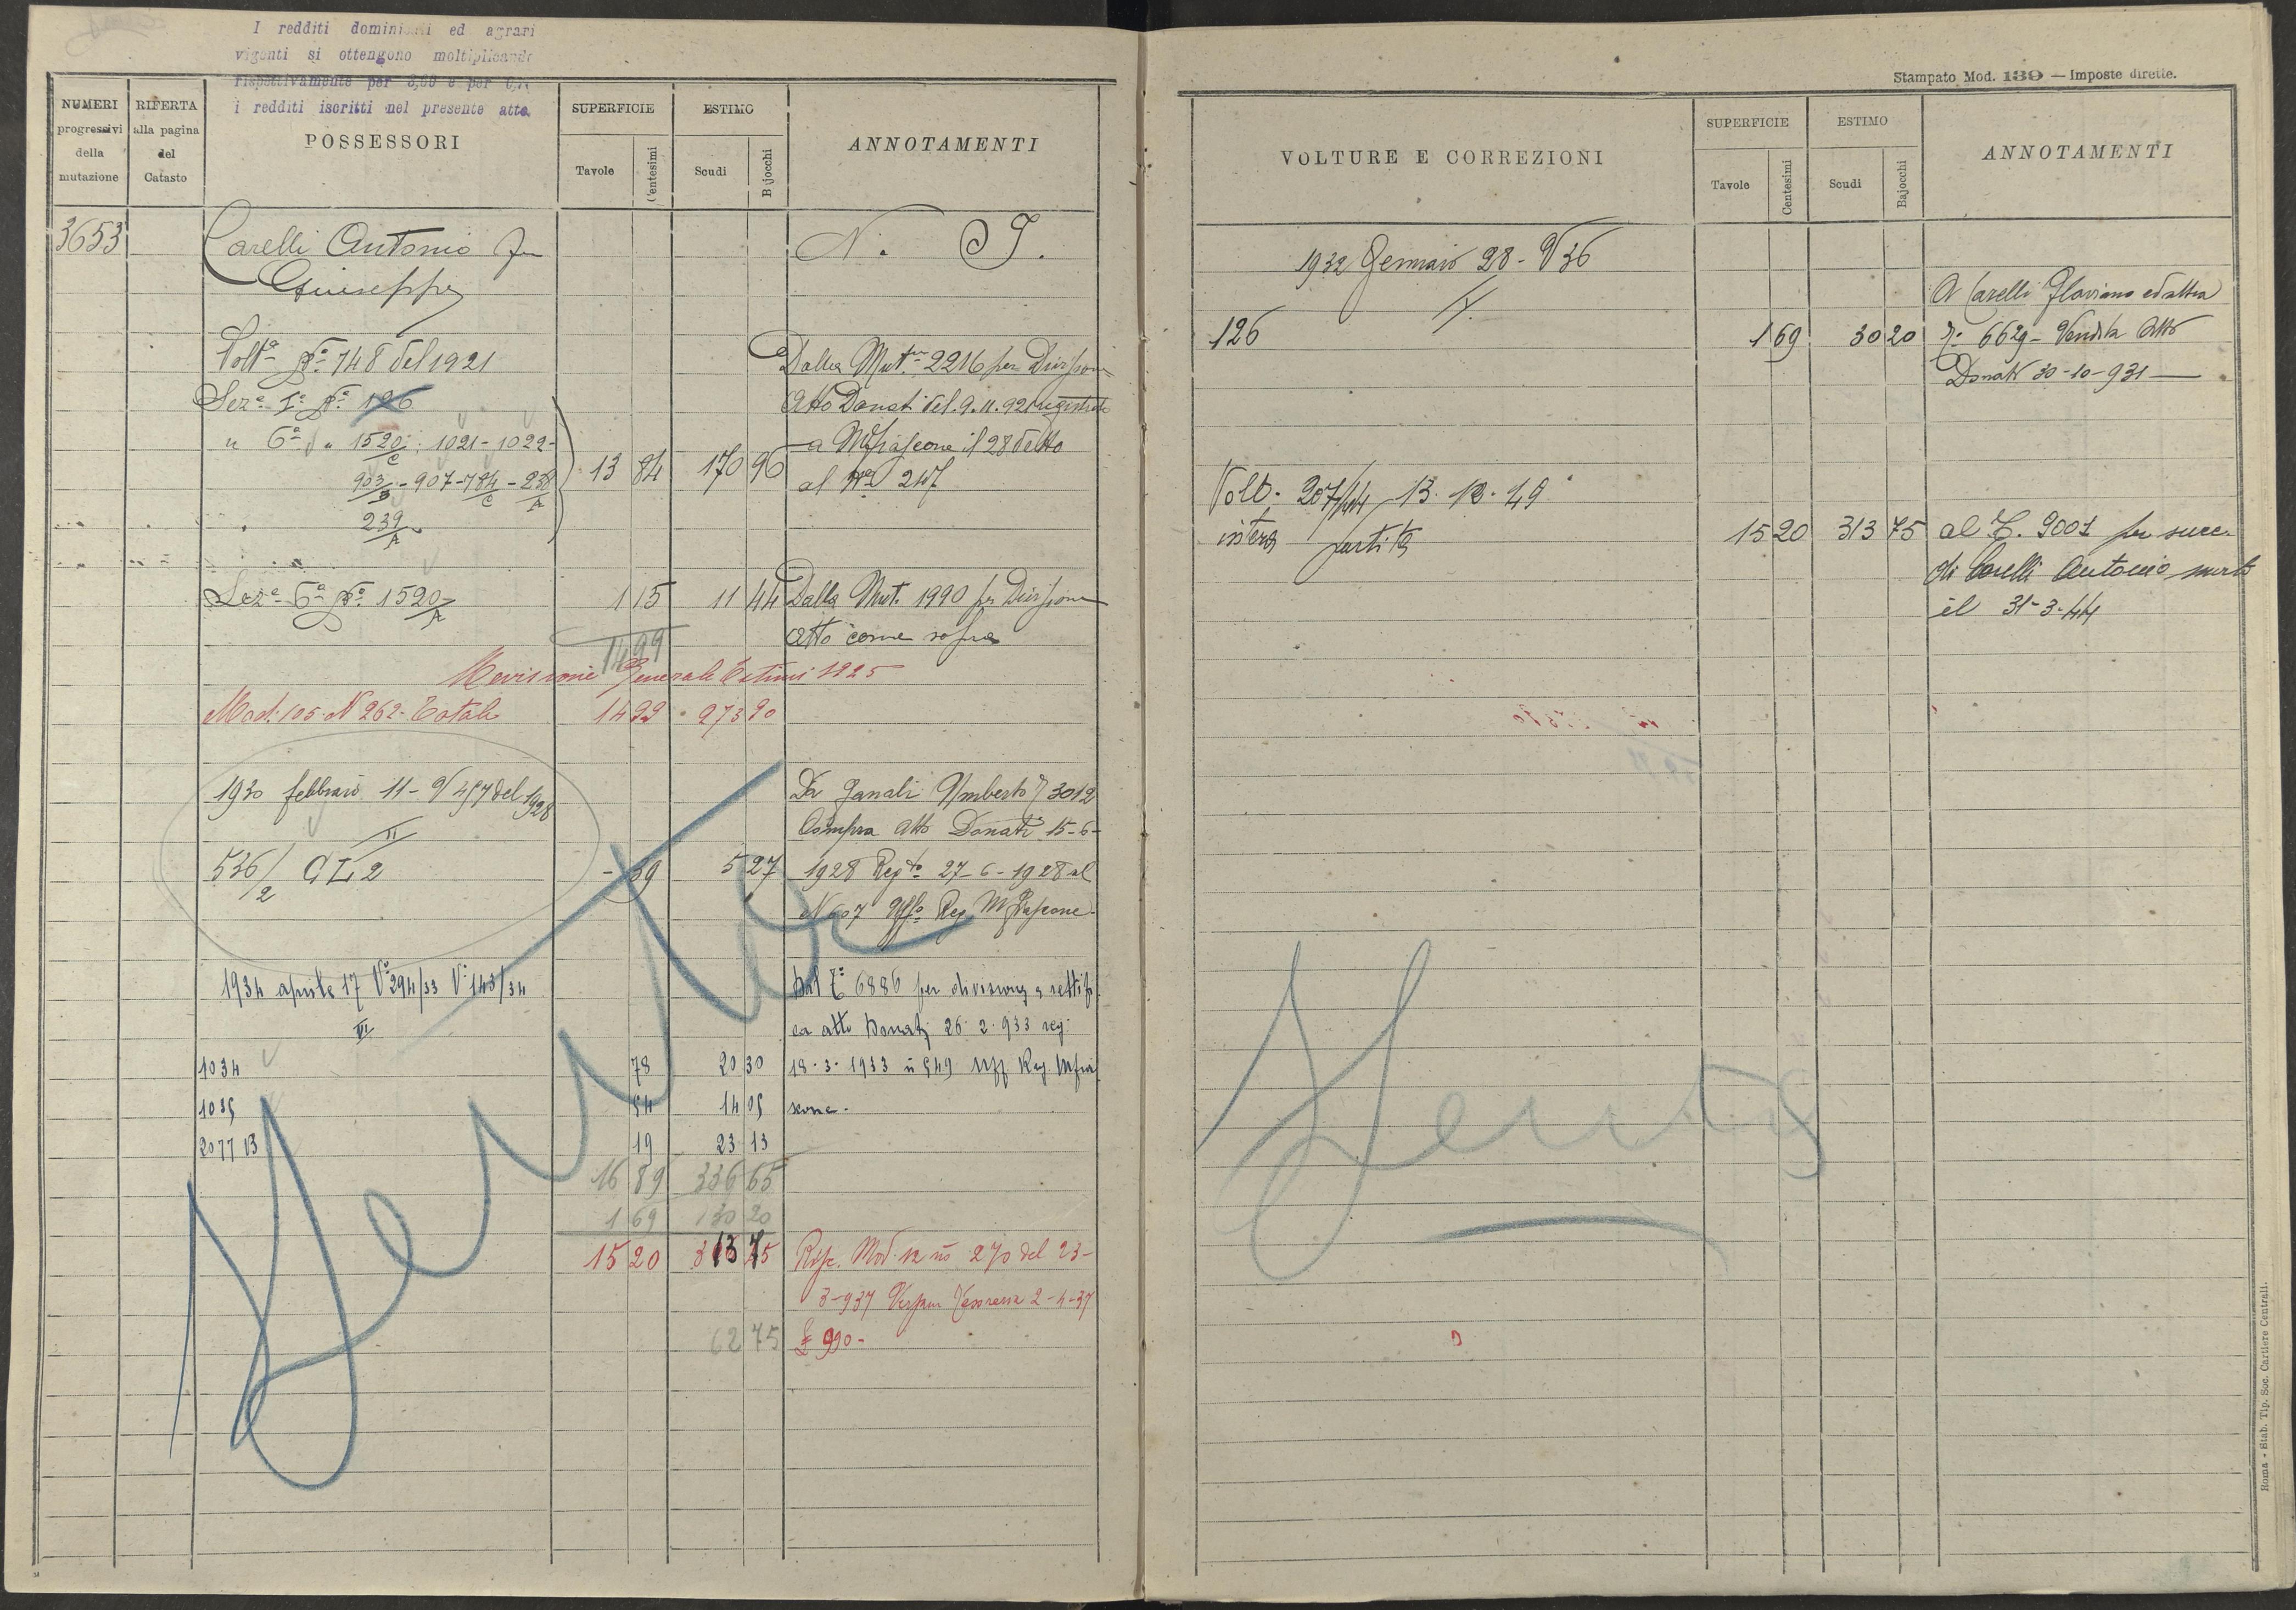 I redditi dominicali ed agrari
vigenti si ottengono moltiplicando
rispettivamente per 3,60 e per
i redditi iscritti nel presente atto.
NUMERI progressivi della mutazione
RIFERTA alla pagina del Catasto
POSSESSORI
SUPERFICIE
Tavole Centesimi
ESTIMO
Scudi Bajocchi
ANNOTAMENTI
3653
Carelli Antonio fu
Giuseppe
N. 
Volta N° 748 del 1921
Seza I° N° 126
" 6a " 1520/C 1021-1022-
903/B - 907-784/C - 238/A
239/A
13 84 170 96
Dalla Mut.ne 2216 per Divisione
Atto Donati del 9.11.921 registrato
a Mfiascone il 28 detto
al N°
Seza 6a N° 1520/A
1 15 11 44
Dalla Mut. 1990 per Divisione
Atto come sopra
14 99
Revisione Generale Estimi 1925
Mod. 105 N 262 - Totale 14 99 273 90
1930 febbraio 11 - V 457 del 1928
II
536/2 CL 2
- 39 5 27
Da Umberto 3012
Compra Atto Donati 15-6-
1928 Regto 27-6-1928 al
N 607 Uffo Reg Mfiascone
1934 aprile 17 V° 294/33 V° 143/34
VI
Dal 6886 per divisione e rettifi
ca atto Donati 26.2.933 reg.
18.3.1933 n 549 Uff Reg Mfia
scone.
1034 78 20 30
1035 54 14 05
2077 B 19 23 13
16 89 336 65
1 69 30 20
15 20 313 75
Risc. Mod. 12 no 270 del 23-
3-937 Versam Tesoreria 2-4-37
£ 990-
62 75
Stampato Mod. 139 — Imposte dirette.
VOLTURE E CORREZIONI
SUPERFICIE
Tavole Centesimi
ESTIMO
Scudi Bajocchi
ANNOTAMENTI
1932 Gennaio 28 - V 36
126 1 69 30 20
A Carelli Flaviano ed altra
6629 - Vendita Atto
Donati 30-10-931
Volt. 207/44 13.12.49
intera partita 15 20 313 75
al T. 9001 per succ.
di Carelli Antonio morto
il 31-3-44
Roma - Stab. Tip. Soc. Cartiere Centrali.